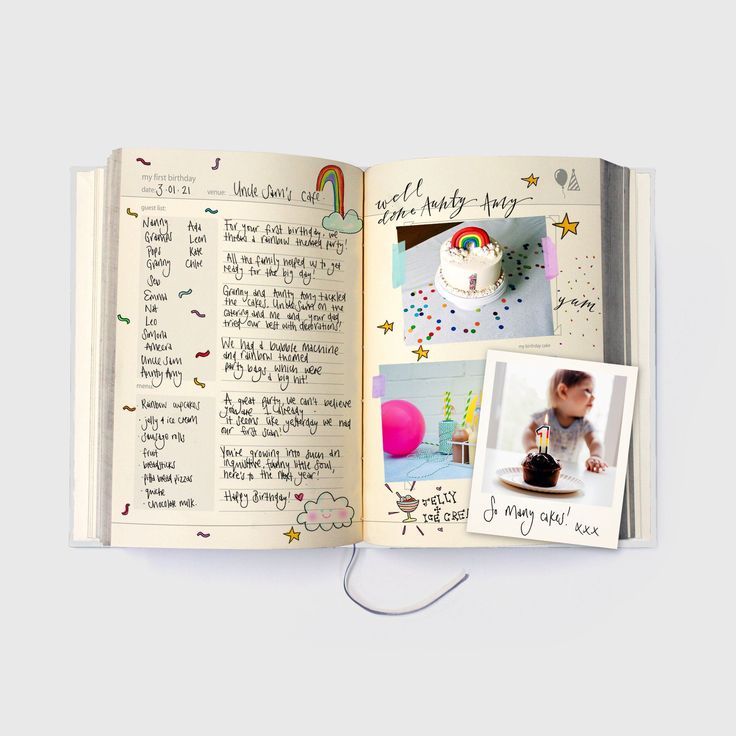 my first birthday
date: 3·01·21 venue: Uncle Sam's cafe.
guest list:
Nanny
Gramps
Pops
Granny
Seb
Emma
Nat
Leo
Simona
Ameera
Uncle Sam
Aunty Amy
Ada
Leon
Kate
Chloe
menu:
Rainbow cupcakes
· jelly & ice cream
· sausage rolls
· fruit
· breadsticks
· pitta bread pizzas
· quiche
· chocolate milk.
For your first birthday we
threw a rainbow themed party!
All the family helped us to get
ready for the big day!
Granny and Aunty Amy tackled
the cakes. Uncle Sam on the
catering and me and your dad
tried our best with decorations!!
We had a bubble machine
and rainbow themed
party bags which were
a big hit!
A great party, we can't believe
you are 1 already.
it seems like yesterday we had
our first scan!
You're growing into such an
inquisitive, funny little soul,
here's to the next year!
Happy Birthday!
well
done Aunty Amy
1
yum
my birthday cake
JELLY
+
ICE CRE
1
So many cakes! xxx